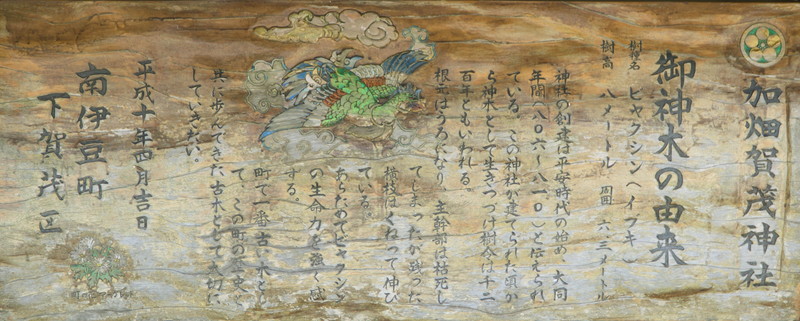 加畑賀茂神社
御神木の由来
樹種名 ビャクシン(イブキ)
樹高 八メートル 周囲 六、三メートル
神社の創建は平安時代の始め、大同
年間(八〇六～八一〇)と伝えられ
ている。この神社が建てられた頃か
ら神木として生きつづけ樹令は千二
百年ともいわれる。
根元はうろになり、主幹部は枯死し
てしまったが残った
横枝はくねって伸び
ている。
あらためてビャクシン
の生命力を強く感
ずる。
町で一番古い木とし
て、この町の歴史と
共に歩んできた古木として大切に
していきたい。
平成十年四月吉日
南伊豆町
下賀茂区